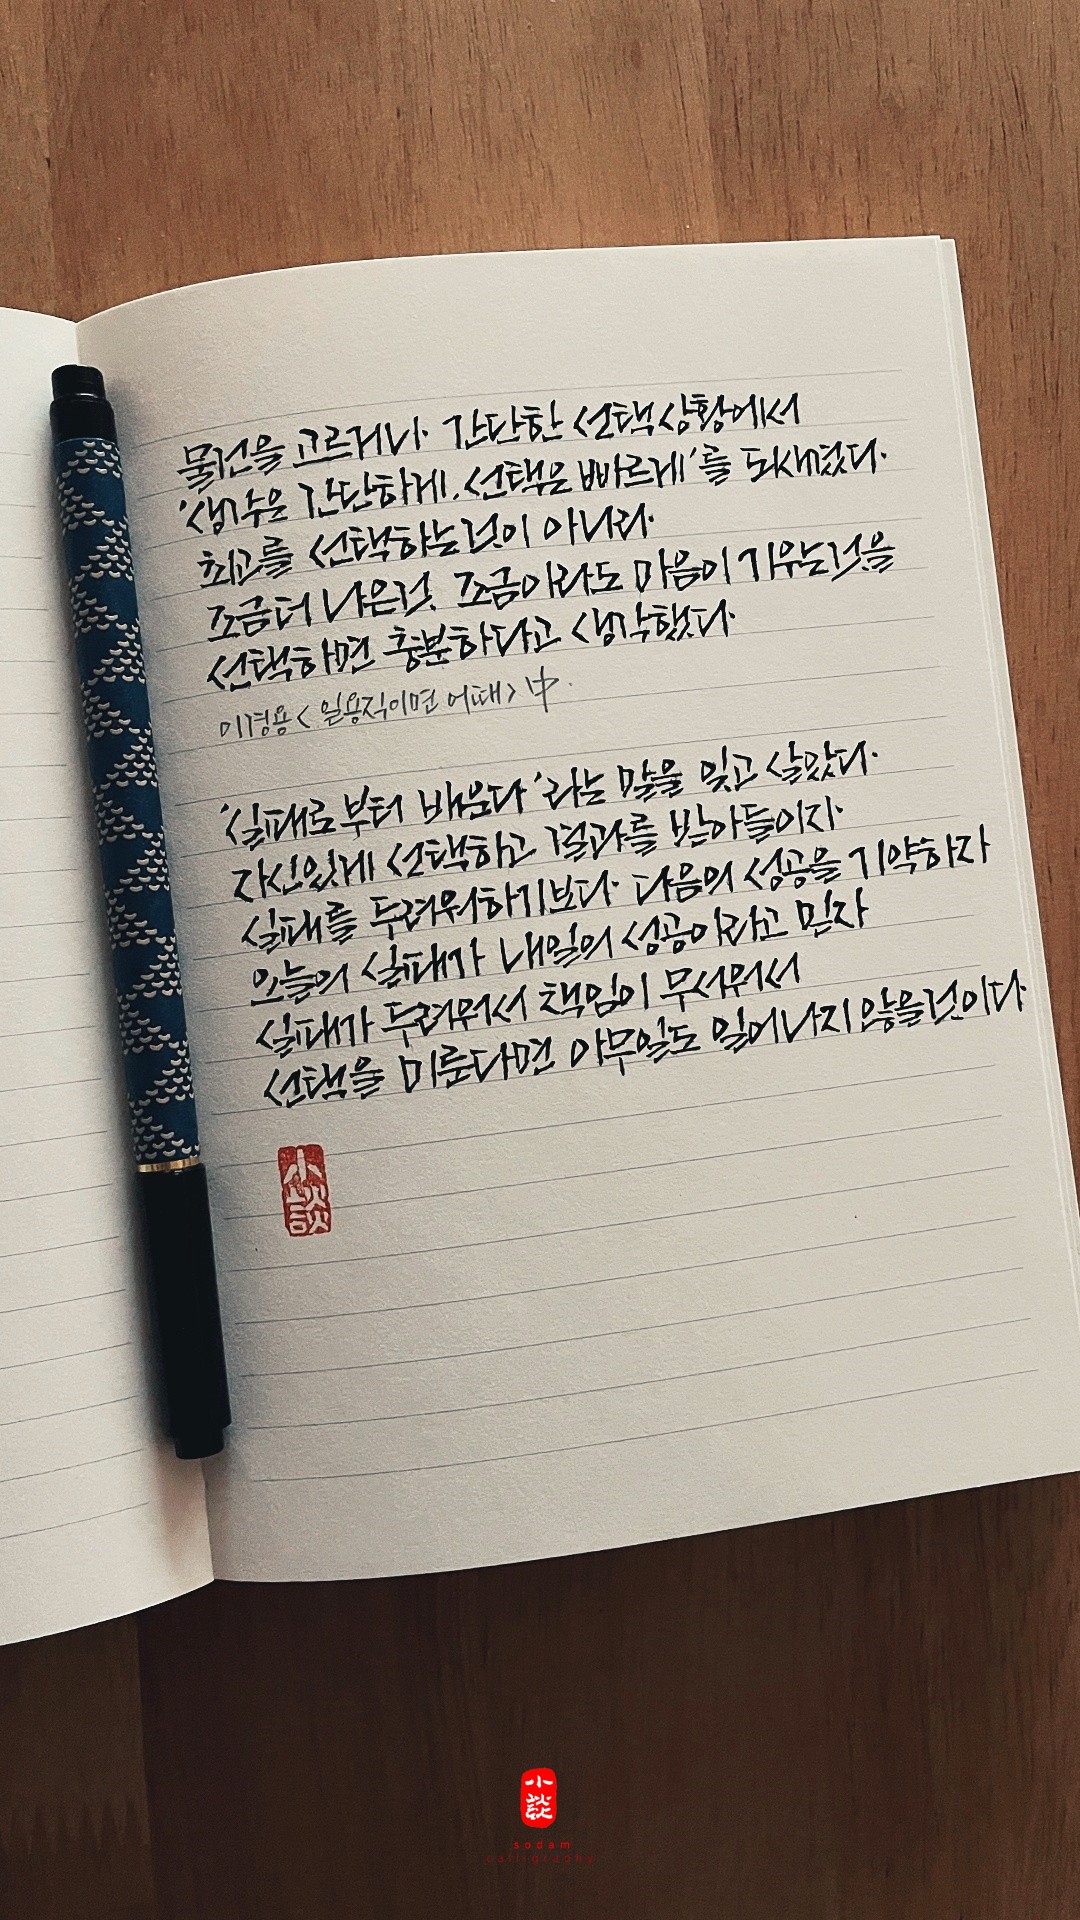 물건을 고르거나 간단한 선택상황에서
'생각은 간단하게, 선택은 빠르게'를 되새겼다.
최고를 선택하는것이 아니라
조금더 나은것, 조금이라도 마음이 기우는것을
선택하면 충분하다고 생각했다
이경용 <일용직이면 어때> 中.
'실패로부터 배운다'라는 말을 잊고 살았다.
자신있게 선택하고 결과를 받아들이자
실패를 두려워하기보다 다음의 성공을 기약하자
오늘의 실패가 내일의 성공이라고 믿자
실패가 두려워서 책임이 무서워서
선택을 미룬다면 아무일도 일어나지 않을것이다
小談
小談
sodam
calligraphy